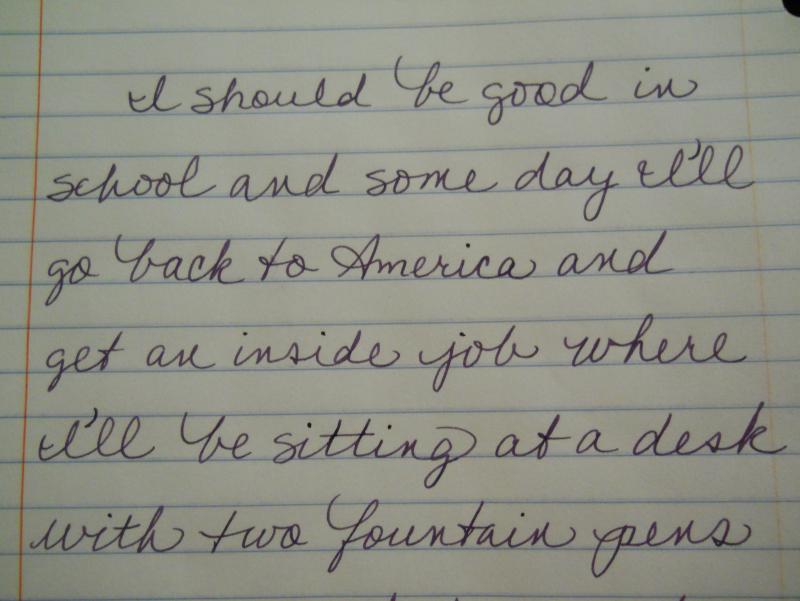 I should be good in
school and some day I'll
go back to America and
get an inside job where
I'll be sitting at a desk
with two fountain pens